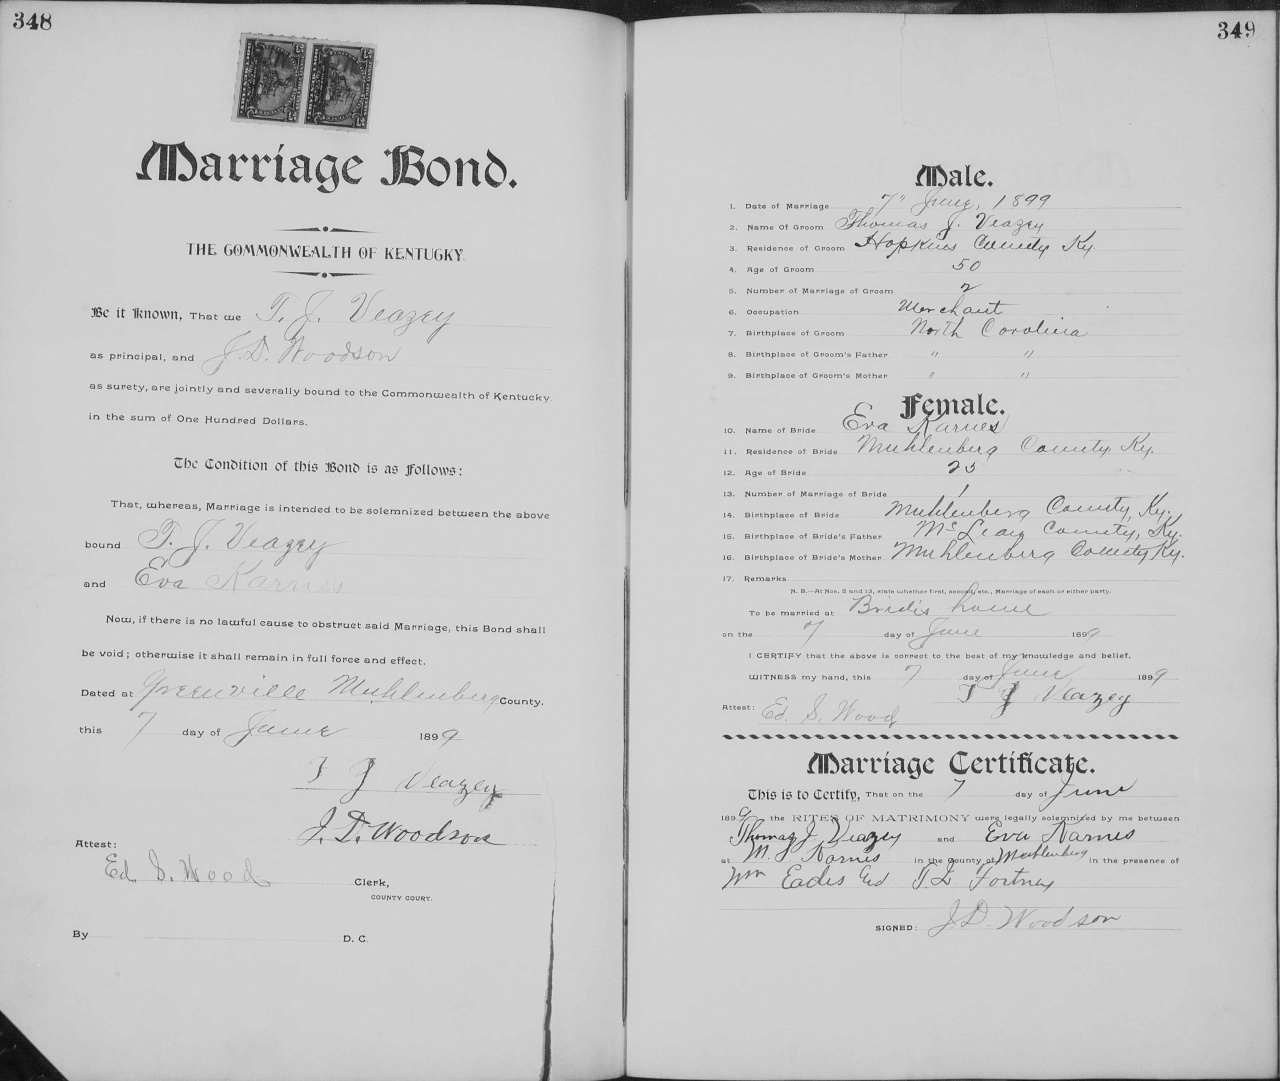 348
Marriage Bond.
THE COMMONWEALTH OF KENTUCKY.
Be it Known, That we T. J. Veazey
as principal, and J. D. Woodson
as surety, are jointly and severally bound to the Commonwealth of Kentucky.
in the sum of One Hundred Dollars.
The Condition of this Bond is as Follows:
That, whereas, Marriage is intended to be solemnized between the above
bound T. J. Veazey
and Eva Karnes
Now, if there is no lawful cause to obstruct said Marriage, this Bond shall
be void; otherwise it shall remain in full force and effect.
Dated at Greenville Muhlenberg County,
this 7 day of June 1899
T J Veazey
J. D. Woodson
Attest:
Ed. S. Wood Clerk,
COUNTY COURT.
By D. C.
349
Male.
1. Date of Marriage 7" June, 1899
2. Name Of Groom Thomas J. Veazey
3. Residence of Groom Hopkins County Ky.
4. Age of Groom 50
5. Number of Marriage of Groom 2
6. Occupation Merchant
7. Birthplace of Groom North Carolina
8. Birthplace of Groom's Father " "
9. Birthplace of Groom's Mother " "
Female.
10. Name of Bride Eva Karnes
11. Residence of Bride Muhlenberg County, Ky.
12. Age of Bride 25
13. Number of Marriage of Bride 1
14. Birthplace of Bride Muhlenberg County, Ky.
15. Birthplace of Bride's Father McLean County, Ky.
16. Birthplace of Bride's Mother Muhlenberg County Ky.
17. Remarks
N. B.—At Nos. 5 and 13, state whether first, second, etc., Marriage of each or either party.
To be married at Bride's home
on the 7 day of June 1899
I CERTIFY that the above is correct to the best of my knowledge and belief.
WITNESS my hand, this 7 day of June 1899
T J Veazey
Attest: Ed. S. Wood
Marriage Certificate.
This is to Certify, That on the 7 day of June
1899 the RITES OF MATRIMONY were legally solemnized by me between
Thomas J Veazey and Eva Karnes
at M. J. Karnes in the County of Muhlenberg in the presence of
Wm Eades and T. L. Fortney
SIGNED: J. D. Woodson